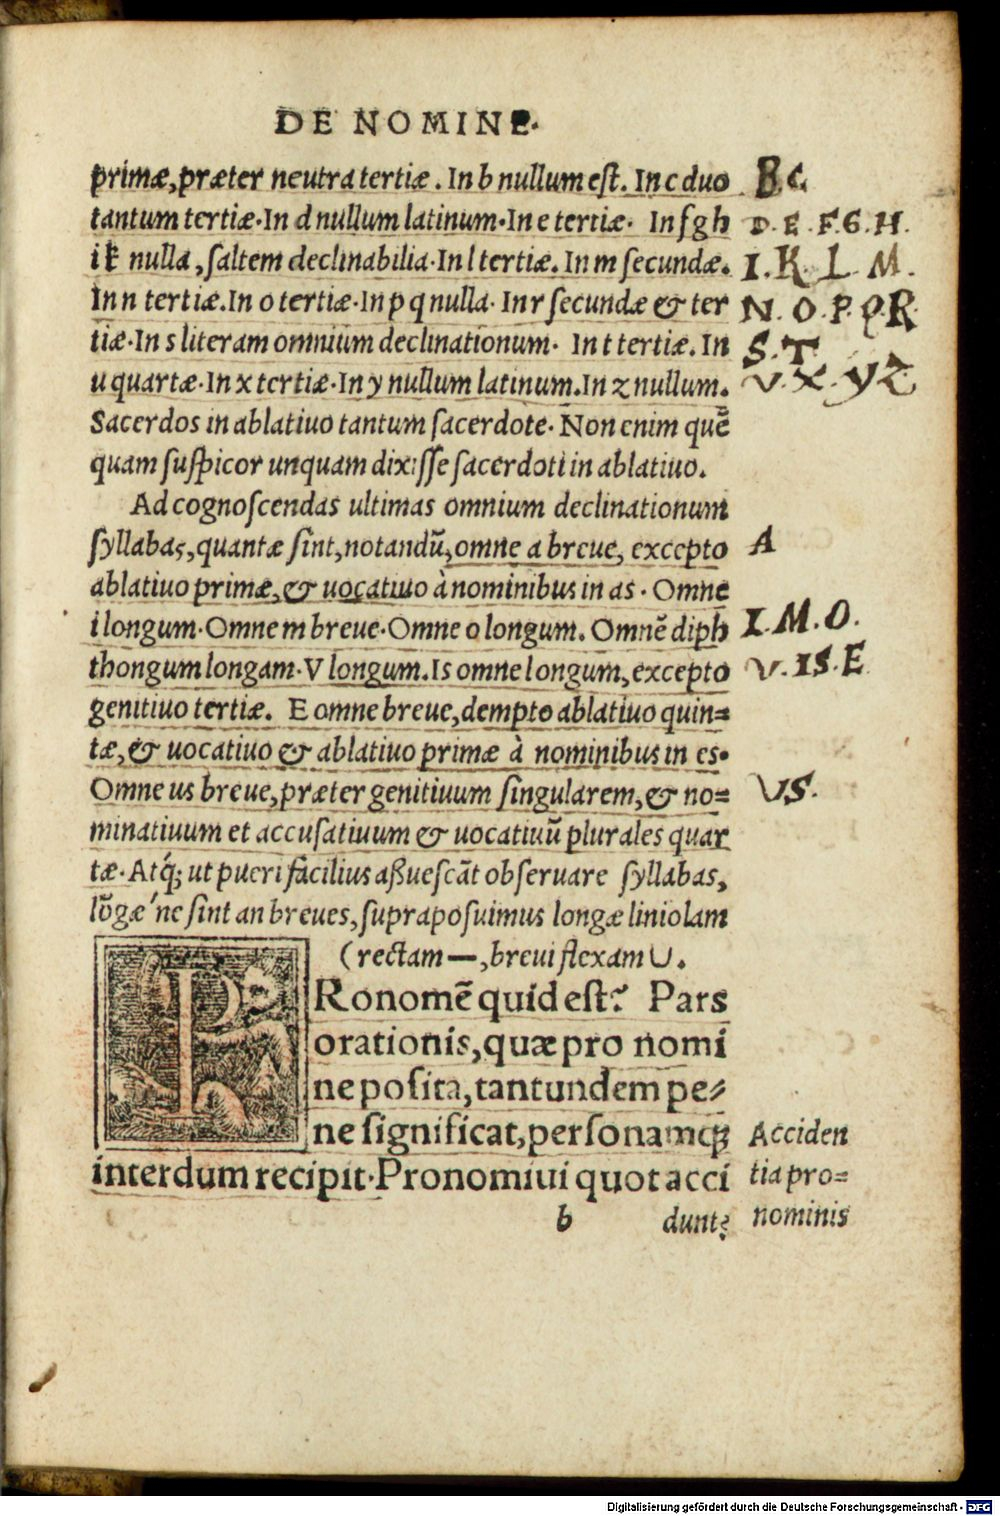 DE NOMINE.
primæ, præter neutra tertiæ. In b nullum est. In c duo
B. C.
tantum tertiæ. In d nullum latinum. In e tertiæ. In f g h
D. E. F. G. H.
i k nulla, saltem declinabilia. In l tertiæ. In m secundæ.
I. K. L. M.
In n tertiæ. In o tertiæ. In p q nulla. In r secundæ & ter
N. O. P. Q. R.
tiæ. In s literam omnium declinationum. In t tertiæ. In
S. T.
u quartæ. In x tertiæ. In y nullum latinum. In z nullum.
V. X. y Z
Sacerdos in ablatiuo tantum sacerdote. Non enim quē
quam suspicor unquam dixisse sacerdoti in ablatiuo.
Ad cognoscendas ultimas omnium declinationum
syllabas, quantæ sint, notandū, omne a breue, excepto
A
ablatiuo primæ, & uocatiuo à nominibus in as. Omne
i longum. Omne m breue. Omne o longum. Omnē diph
I. M. O.
thongum longam. V longum. Is omne longum, excepto
V. IS. E
genitiuo tertiæ. E omne breue, dempto ablatiuo quin=
tæ, & uocatiuo & ablatiuo primæ à nominibus in es.
Omne us breue, præter genitiuum singularem, & no=
VS.
minatiuum et accusatiuum & uocatiuū plurales quar
tæ. Atq́; ut pueri facilius aßuescāt obseruare syllabas,
lōgæ ne sint an breues, supraposuimus longæ liniolam
(rectam —, breui flexam ∪.
PRonomē quid est? Pars
orationis, quæ pro nomi
ne posita, tantundem pe=
ne significat, personamq;
interdum recipit. Pronomiui quot acci
Acciden
tia pro=
nominis
b dunt?
Digitalisierung gefördert durch die Deutsche Forschungsgemeinschaft - DFG